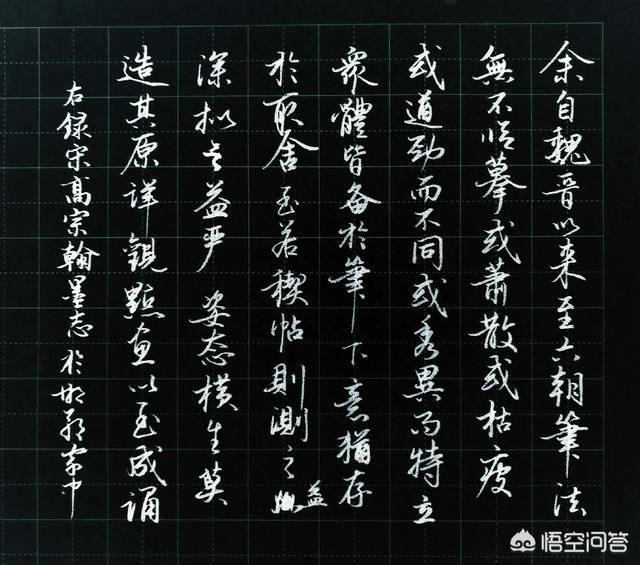 余自魏晋以来至六朝筆法
無不临摹或蕭散或枯瘦
或遒劲而不同或秀異而特立
衆體皆备於筆下意猶存
於取舍至若稧帖則測之益
深拟之益严 姿态横生莫
造其原详觀點画以至成诵
右録宋高宗翰墨志於邯郸家中
悟空问答